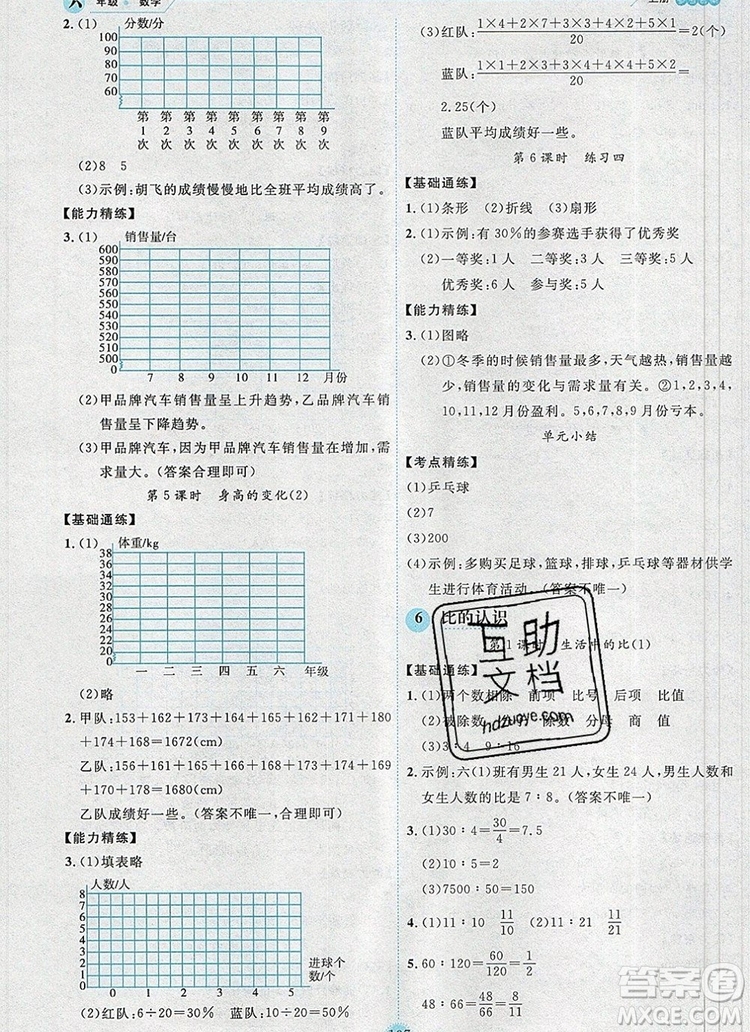 六 年级·数学 上册
2. (1) 分数/分
100
90
80
70
60
50
0
第1次 第2次 第3次 第4次 第5次 第6次 第7次 第8次 第9次
(2)8 5
(3)示例:胡飞的成绩慢慢地比全班平均成绩高了。
【能力精练】
3. (1) 销售量/台
600
590
580
570
560
550
540
530
520
510
500
0
7 8 9 10 11 12 月份
(2)甲品牌汽车销售量呈上升趋势,乙品牌汽车销
售量呈下降趋势。
(3)甲品牌汽车,因为甲品牌汽车销售量在增加,需
求量大。(答案合理即可)
第5课时 身高的变化(2)
【基础通练】
1. (1) 体重/kg
38
36
34
32
30
28
26
24
22
20
18
0
一 二 三 四 五 六 年级
(2)略
2. 甲队:153+162+173+164+165+162+171+180
+174+168=1672(cm)
乙队成绩好一些。(答案不唯一,合理即可)
【能力精练】
3. (1)填表略
人数/人
8
7
6
5
4
3
2
1
0
0 1 2 3 4 5
进球个数/个
(2)红队:6÷20=30% 蓝队:10÷20=50%
(3)红队:(1×4+2×7+3×3+4×2+5×1)/20=2(个)
蓝队:(1×1+2×7+3×4+4×2+5×2)/20=
2.25(个)
蓝队平均成绩好一些。
第6课时 练习四
【基础通练】
1. (1)条形 (2)折线 (3)扇形
2. (1)示例:有30%的参赛选手获得了优秀奖
(2)一等奖:1人 二等奖:3人 三等奖:5人
优秀奖:6人 参与奖:5人
【能力精练】
3. (1)图略
(2)①冬季的时候销售量最多,天气越热,销售量越
少,销售量的变化与需求量有关。②1,2,3,4,
10,11,12月份盈利。5,6,7,8,9月份亏本。
单元小结
【考点精练】
(1)乒乓球
(2)7
(3)200
(4)示例:多购买足球,篮球,排球,乒乓球等器材供学
生进行体育活动。(答案不唯一)
6 比的认识
第1课时 生活中的比(1)
【基础通练】
1. (1)两个数相除 前项 比号 后项 比值
(2)被除数 除数 分母 商 值
(3)3∶4 9∶16
2. 示例:六(1)班有男生21人,女生24人,男生人数和
女生人数的比是7∶8。
3. (1)30∶4=30/4=7.5
(2)10∶5=2
(3)7500∶50=150
4. (1)11∶10 11/10 (2)11∶21 11/21
5. 60∶120=60/120=1/2
48∶66=48/66=8/11
互助
文档
hdzuoye.com
答案圈
MXQE.COM